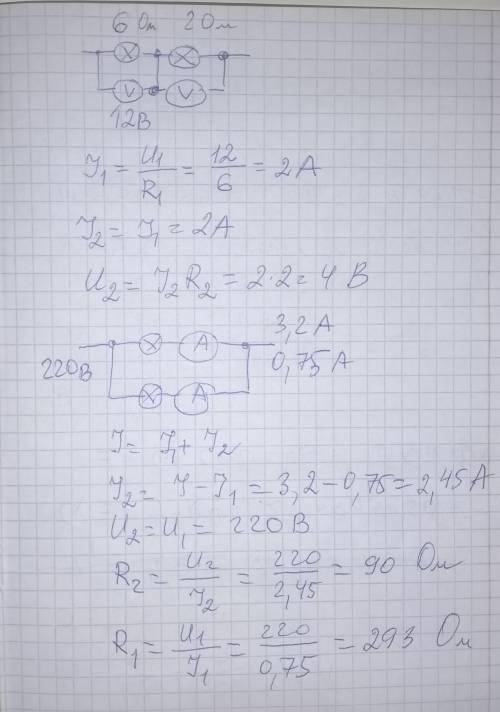 6 Ом 2 Ом
X X
V V
12В
I₁ = U₁/R₁ = 12/6 = 2А
I₂ = I₁ = 2А
U₂ = I₂R₂ = 2·2 = 4 В
X A 3,2 А
220В 0,75 А
X A
I = I₁ + I₂
I₂ = I - I₁ = 3,2 - 0,75 = 2,45 А
U₂ = U₁ = 220В
R₂ = U₂/I₂ = 220/2,45 = 90 Ом
R₁ = U₁/I₁ = 220/0,75 = 293 Ом